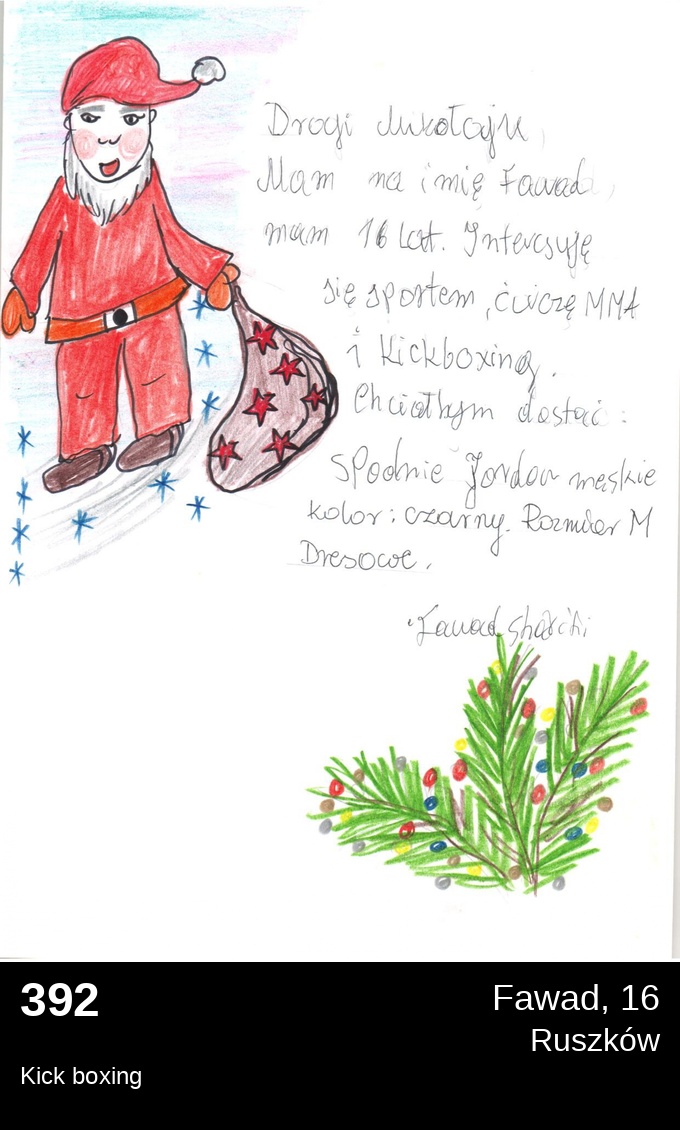 Drogi Mikołaju,
Mam na imię Fawad,
mam 16 lat. Interesuję
się sportem, ćwiczę MMA
i Kickboxing.
Chciałbym dostać:
Spodnie Jordan męskie
kolor: czarny. Rozmiar M
Dresowe.
Fawad
392
Fawad, 16
Ruszków
Kick boxing